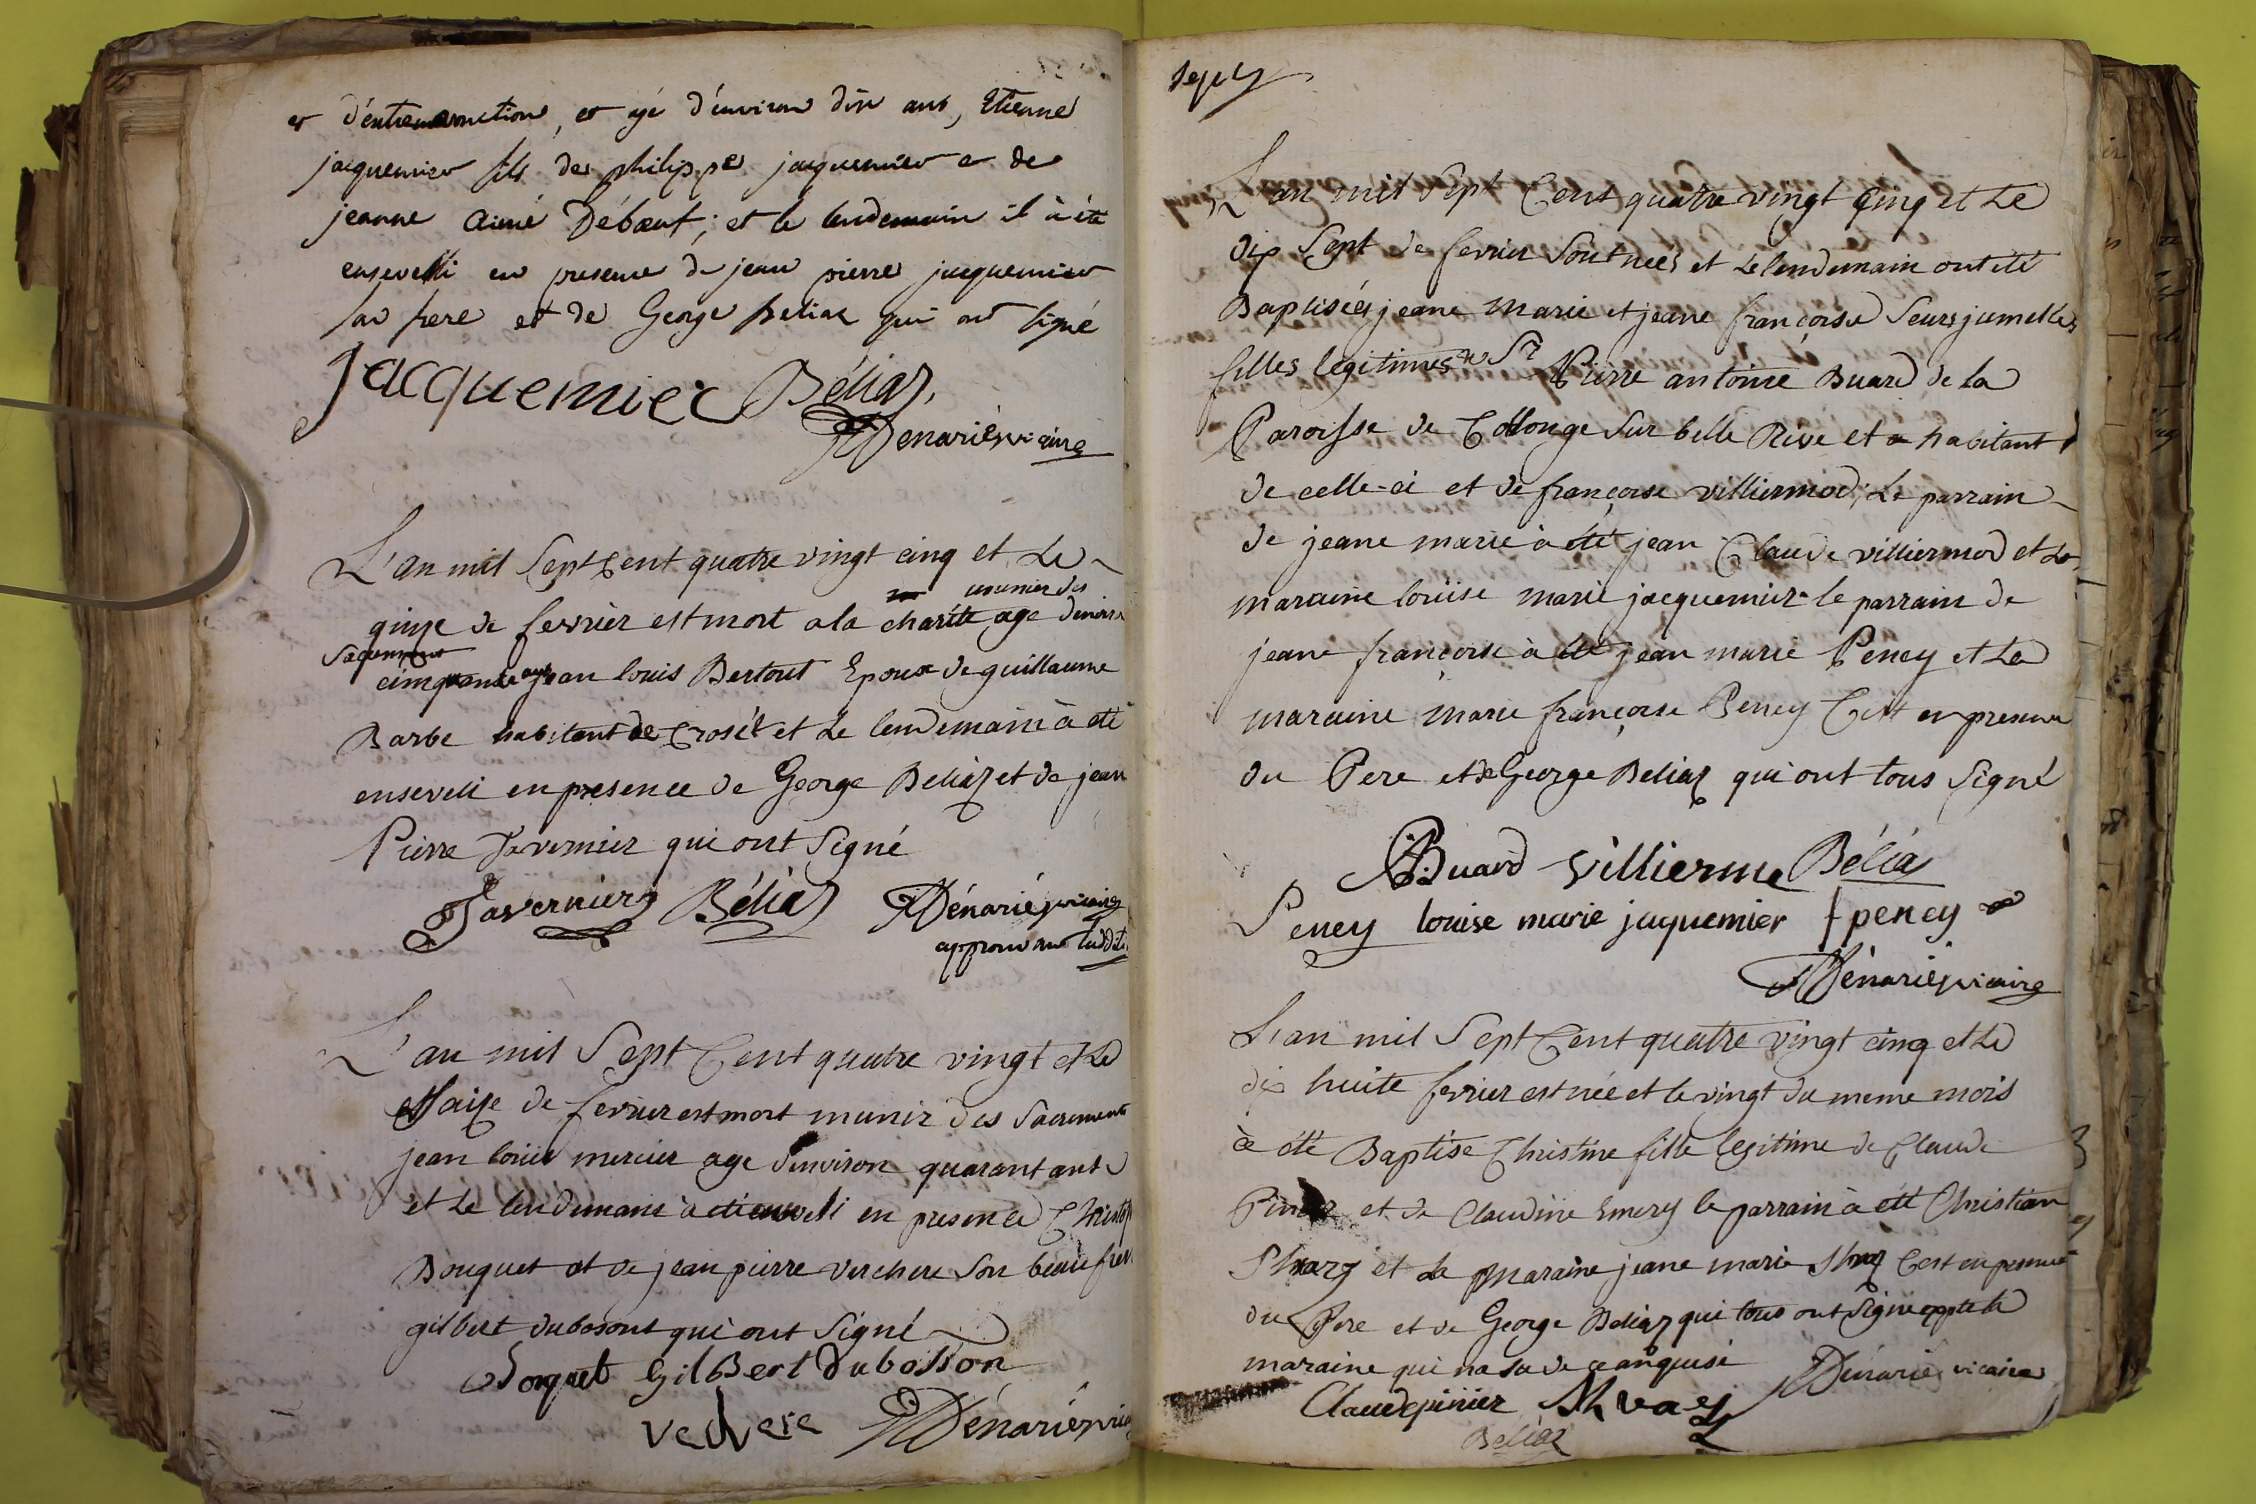 et d'extremonction, et agé d'environ dix ans, Etienne
jacquemier fils de philippe jacquemier et de
jeanne aimé Débœuf; et le lendemain il à été
ensevelli en presence de jean pierre jacquemier
son frere et de George Beliaz qui ont signé
jacquemier Béliaz
Denarié vicaire
L'an mil Sept Cent quatre vingt cinq et Le
munier des
quinze de fevrier est mort a la charité age denviron
Sacrement
cinquante ans jean louis Bertout Epoux de guillaume
Barbe habitant de Crosét et Le lendemain à été
enseveli en presence de George Beliaz et de jean
Pierre Tavernier qui ont Signé
Tavernier Béliaz Dénarié vicaire
approuvant
L'an mil Sept Cent quatre vingt et Le
Saize de fevrier est mort munir des Sacrements
jean louis mercier age d'environ quarant ans
et Le lendemain à eté enseveli en presence
Bouquet et de jean pierre verchere Son beau frere
gilbert dubosont qui ont Signé
Boquet GilBert Dubosson
vechere Dénarié vicaire
L'an mil Sept Cent quatre vingt Cinq et Le
dix Sept de fevrier Sont neés et Le lendemain ont été
Baptisées jeane Marie et jeane françoise Seurs jumelles
filles legitimes de Sr Pierre antoine Buard de La
Paroisse de Collonge Sur belle Rive et habitant
de celle-ci et de françoise villiermod; Le parrain
de jeane marie à été jean Claude villiermod et La
maraine loüise marie jacquemier le parrain de
jeane françoise à été jean marie Peney et La
maraine marie françoise Peney C'est en presence
du Pere et de George Beliaz qui ont tous Signé
Buard villierme Béliaz
Peney louise marie jaquemier f peney
Dénarié vicaire
L'an mil Sept Cent quatre vingt cinq et Le
dix huite fevrier est née et le vingt du meme mois
à été Baptise Christine fille legitime de Claude
Pinier et de Claudine Emery le parrain à été Christian
et La maraine jeane marie C'est en presence
du Pere et de George Beliaz qui tous ont Signé excepté la
maraine qui na su de ce enquise Dénarié vicaire
Claude pinier
Béliaz